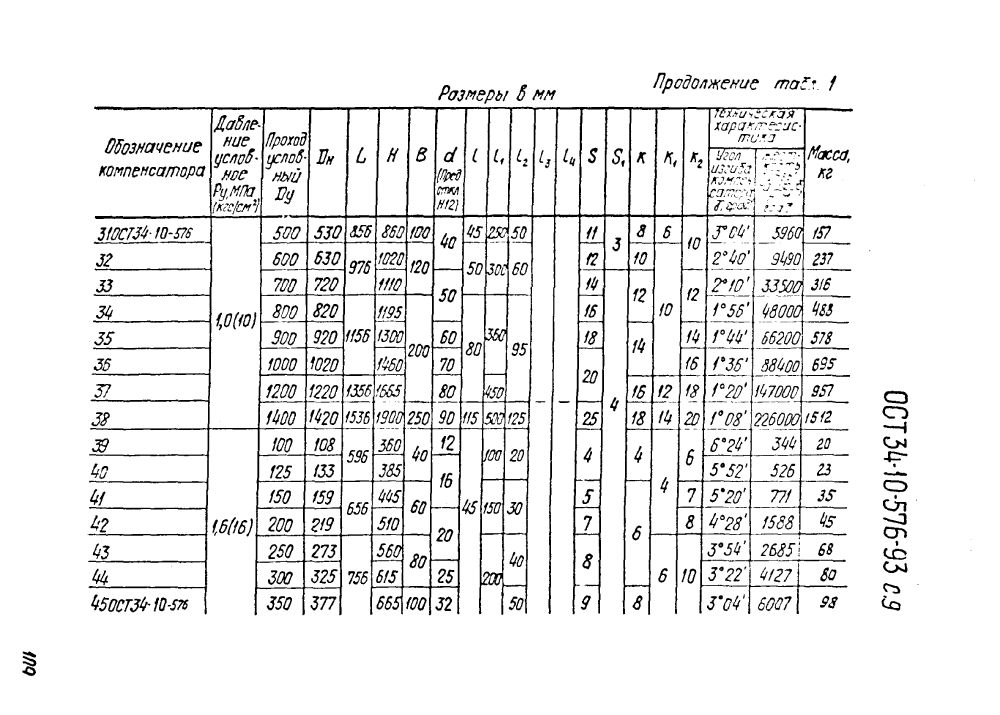 Продолжение табл. 1
Размеры в мм
Обозначение компенсатора | Давление условное Ру, МПа (кгс/см²) | Проход условный Ду | Dн | L | H | B | d (Пред откл H12) | l | l₁ | l₂ | l₃ | l₄ | S | S₁ | K | K₁ | K₂ | Техническая характеристика | Масса, кг
Угол изгиба
31ОСТ34-10-576 | 1,0(10) | 500 | 530 | 856 | 860 | 100 | 40 | 45 | 250 | 50 | 11 | 3 | 8 | 6 | 10 | 3°04' | 5960 | 157
32 | 600 | 630 | 976 | 1020 | 120 | 50 | 300 | 60 | 12 | 10 | 2°40' | 9490 | 237
33 | 700 | 720 | 1110 | 50 | 14 | 4 | 12 | 10 | 12 | 2°10' | 33500 | 316
34 | 800 | 820 | 1156 | 1195 | 200 | 80 | 350 | 95 | 16 | 1°56' | 48000 | 483
35 | 900 | 920 | 1300 | 60 | 18 | 14 | 14 | 1°44' | 66200 | 578
36 | 1000 | 1020 | 1460 | 70 | 20 | 16 | 1°36' | 88400 | 695
37 | 1200 | 1220 | 1356 | 1665 | 80 | 450 | 16 | 12 | 18 | 1°20' | 147000 | 957
38 | 1400 | 1420 | 1536 | 1900 | 250 | 90 | 115 | 500 | 125 | — | — | 25 | 18 | 14 | 20 | 1°08' | 226000 | 1512
39 | 1,6(16) | 100 | 108 | 596 | 360 | 40 | 12 | 45 | 100 | 20 | 4 | 4 | 4 | 6 | 6°24' | 344 | 20
40 | 125 | 133 | 385 | 16 | 5°52' | 526 | 23
41 | 150 | 159 | 656 | 445 | 60 | 150 | 30 | 5 | 6 | 7 | 5°20' | 771 | 35
42 | 200 | 219 | 510 | 20 | 7 | 8 | 4°28' | 1588 | 45
43 | 250 | 273 | 756 | 560 | 80 | 200 | 40 | 8 | 6 | 10 | 3°54' | 2685 | 68
44 | 300 | 325 | 615 | 25 | 3°22' | 4127 | 80
45ОСТ34-10-576 | 350 | 377 | 665 | 100 | 32 | 50 | 9 | 8 | 3°04' | 6007 | 98
ОСТ34-10-576-93 с.9
109